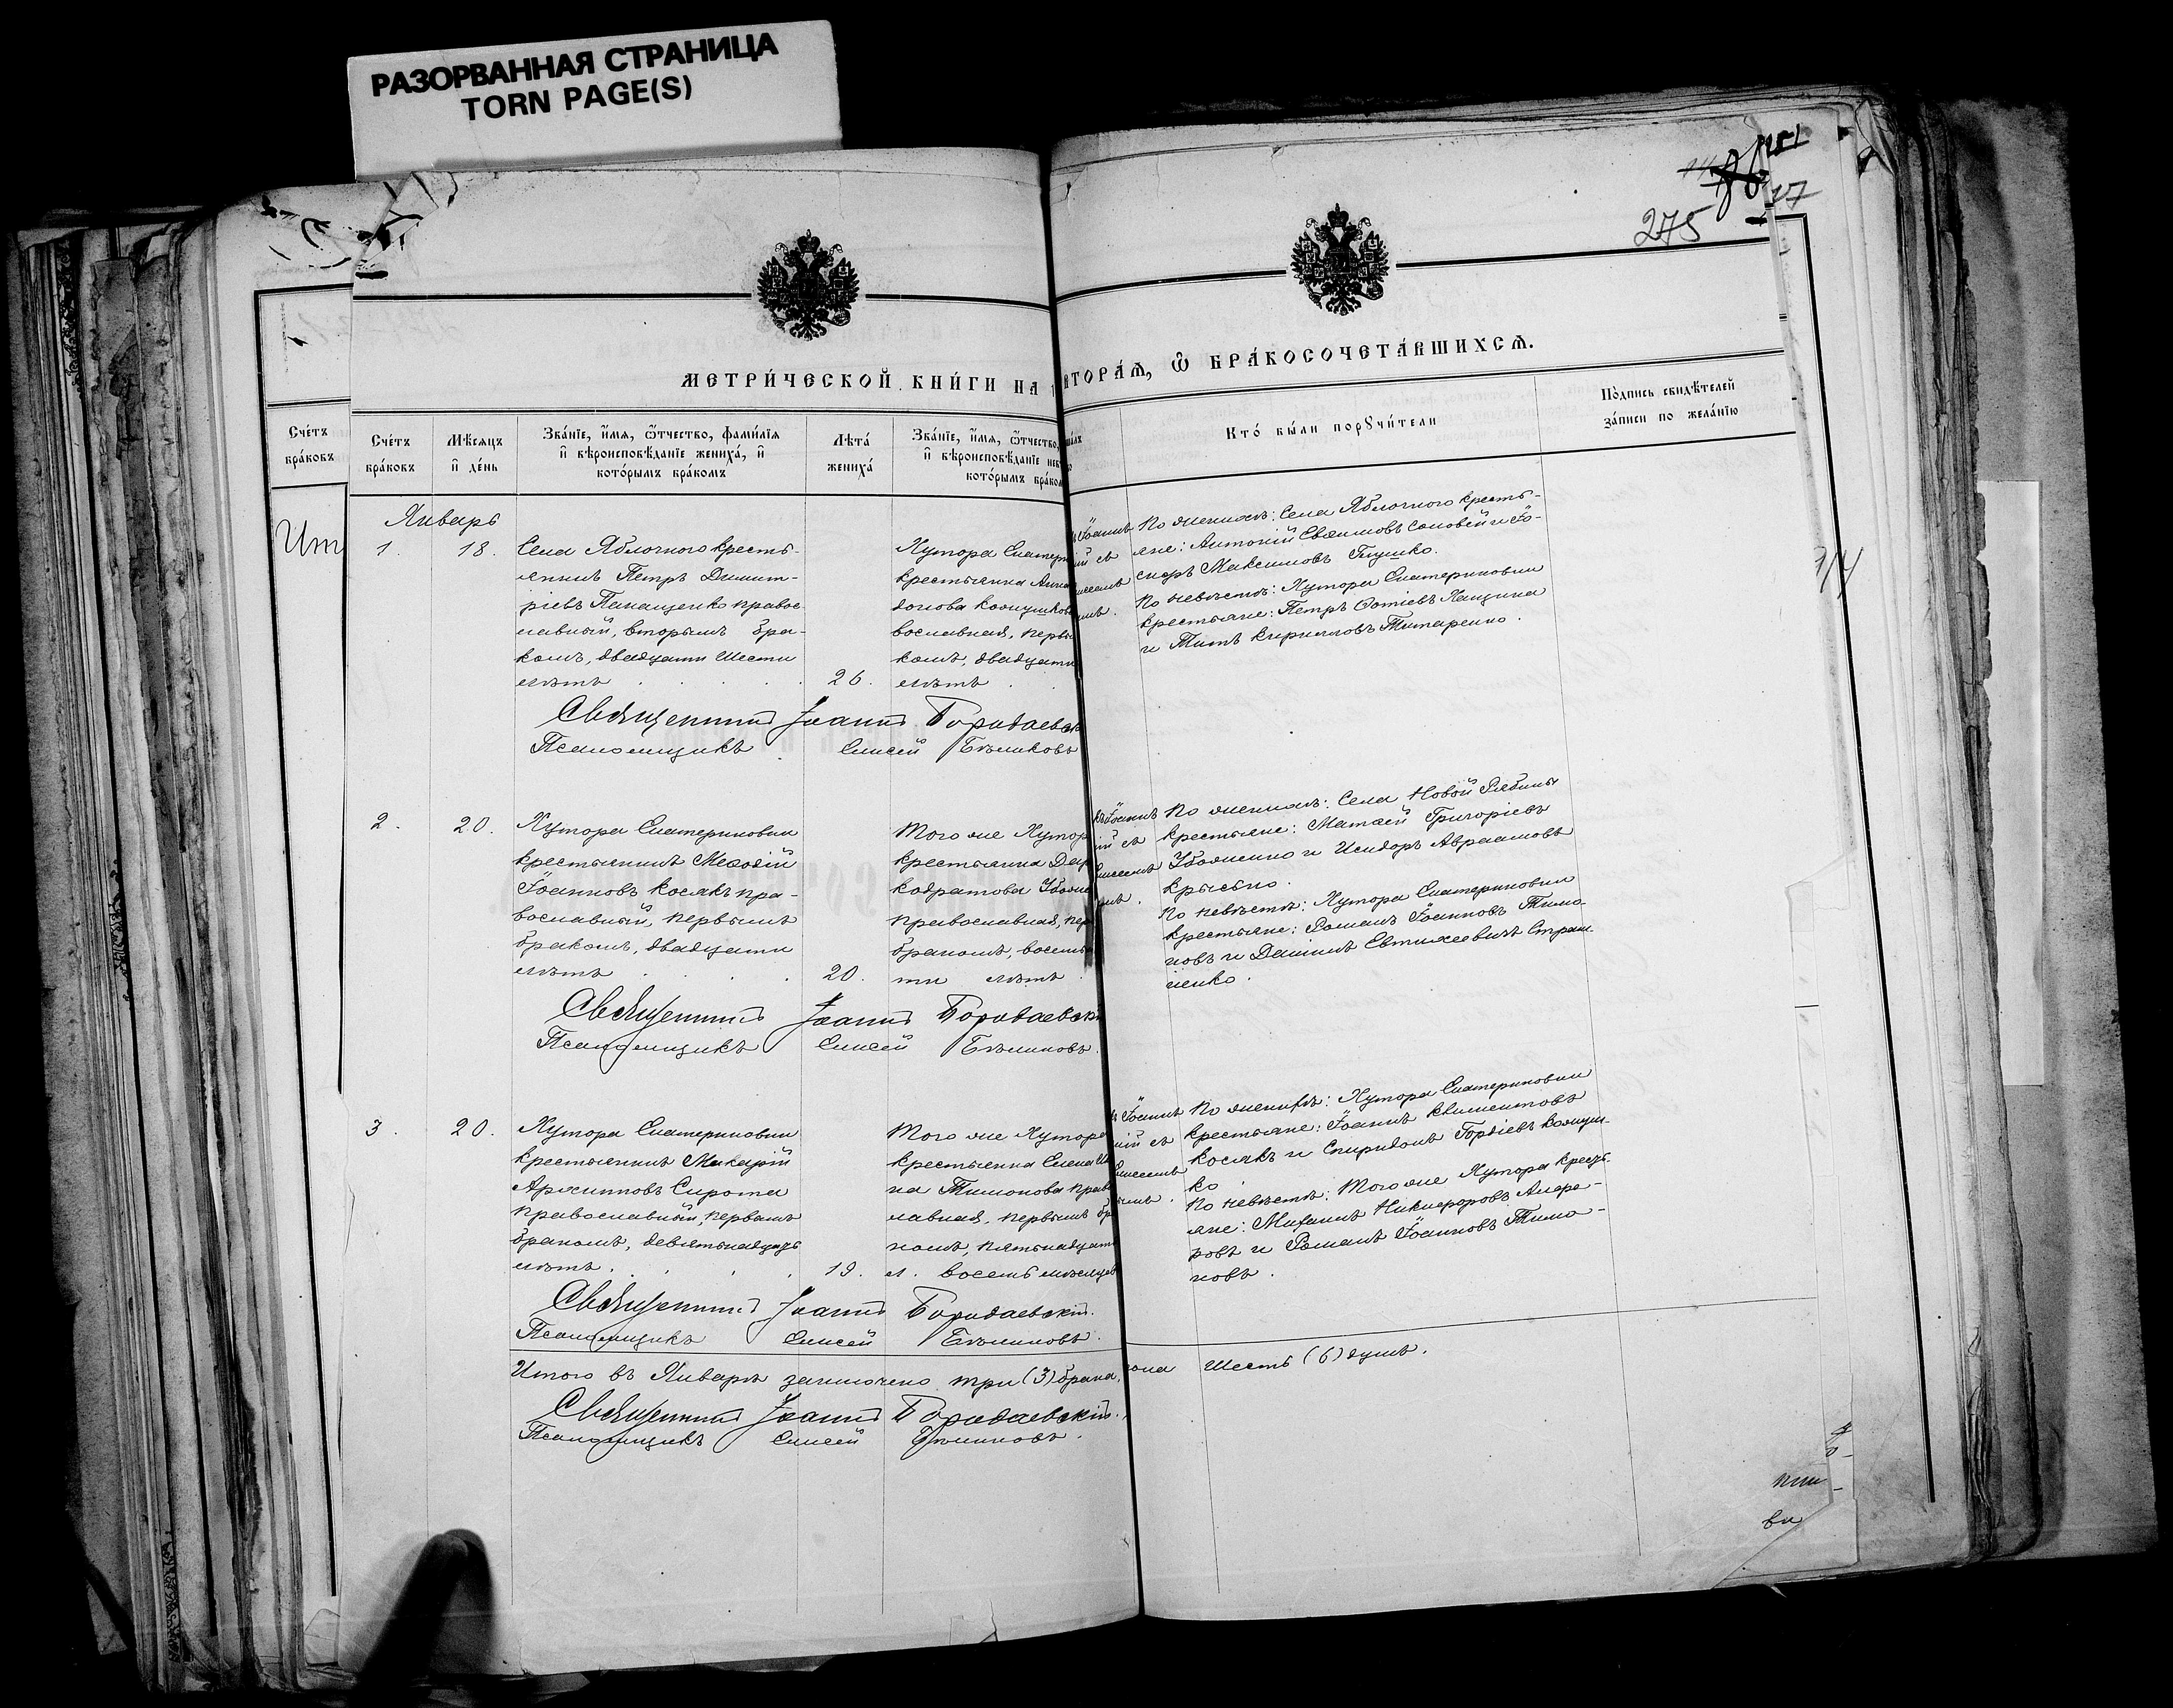 РАЗОРВАННАЯ СТРАНИЦА
TORN PAGE(S)
275
МЕТРИ́ЧЕСКОЙ КНИ́ГИ НА
ВТОРА́Ѧ, Ѽ БРА́КОСОЧЕТА́ВШИХСѦ.
Сче́тъ
бра́ковъ
Сче́тъ
бра́ковъ
Мѣ́сяцъ
и҆ де́нь
Зва́нїе, и҆́мѧ, ѻ҆́тчество, фами́лїѧ
и҆ вѣроисповѣ́данїе жениха́, и҆
кото́рымъ бра́комъ
Лѣта̀
жениха̀
Зва́нїе, и҆́мѧ, ѻ҆́тчество,
и҆ вѣроисповѣ́данїе нев
кото́рымъ бра́ком
Кто̀ бы́ли порꙋчи́тели
По́дпись свидѣ́телей
за́писи по жела́нїю
Ит
Январь
1. 18.
Села Яблочного кресть-
янинъ Петръ Димит-
ріевъ Панащенко правос
лавный, вторымъ бра-
комъ, двадцати шести
лѣтъ
26.
Хутора Екатерин
крестьянка Анна
донова Колнушкова
вославная, первы
комъ, двадцати
лѣтъ
Іоаннъ
ій съ
лисеемъ
По женихѣ: Села Яблочного кресть-
яне: Антоній Евѳимовъ Соловей и Іо-
сифъ Максимовъ Глушко.
По невѣстѣ: Хутора Екатериновки
крестьяне: Петръ Фотіевъ Лащина
и Титъ Кирилловъ Титаренко.
Священникъ Іоаннъ Боридаевск
Псаломщикъ Елисей Бѣликовъ
2. 20.
Хутора Екатериновки
крестьянинъ Меѳодій
Іоанновъ Косякъ пра-
вославный, первымъ
бракомъ, двадцати
лѣтъ
20.
Того же Хутор
крестьянка Дар
кодратова Убоже
православная, пер
бракомъ, восемь
ти лѣтъ
Іоаннъ
ій съ
Елисеемъ
По женихѣ: Села Новой Рябины
крестьяне: Матѳей Григоріевъ
Убоженко и Исидоръ Авраамовъ
Крысько.
По невѣстѣ: Хутора Екатериновки
крестьяне: Романъ Іоанновъ Тимо-
новъ и Даніилъ Евтихеевичъ Страш-
ненко.
Священникъ Іоаннъ Боридаевскі
Псаломщикъ Елисей Бѣликовъ.
3. 20.
Хутора Екатериновки
крестьянинъ Макарій
Архипповъ Сирота
православный, первымъ
бракомъ, девятьнадцать
лѣтъ.
19.
Того же Хутора
крестьянка Елена И
на Тимонова прав
лавная, первымъ бр
комъ, пятьнадцати
л. восемь мѣсяцев
Іоаннъ
ій съ
Елисеемъ
По женихѣ: Хутора Екатериновки
крестьяне: Іоаннъ Климентовъ
Косякъ и Спиридонъ Гордіевъ Колнуш-
ко.
По невѣстѣ: Того же Хутора кресть-
яне: Михаилъ Никифоровъ Алфе-
ровъ и Романъ Іоанновъ Тимо-
новъ.
Священникъ Іоаннъ Боридаевскій.
Псаломщикъ Елисей Бѣликовъ.
Итого въ Январѣ заключено три (3) брака, Шесть (6) душъ.
Священникъ Іоаннъ Боридаевскій.
Псаломщикъ Елисей Бѣликовъ.